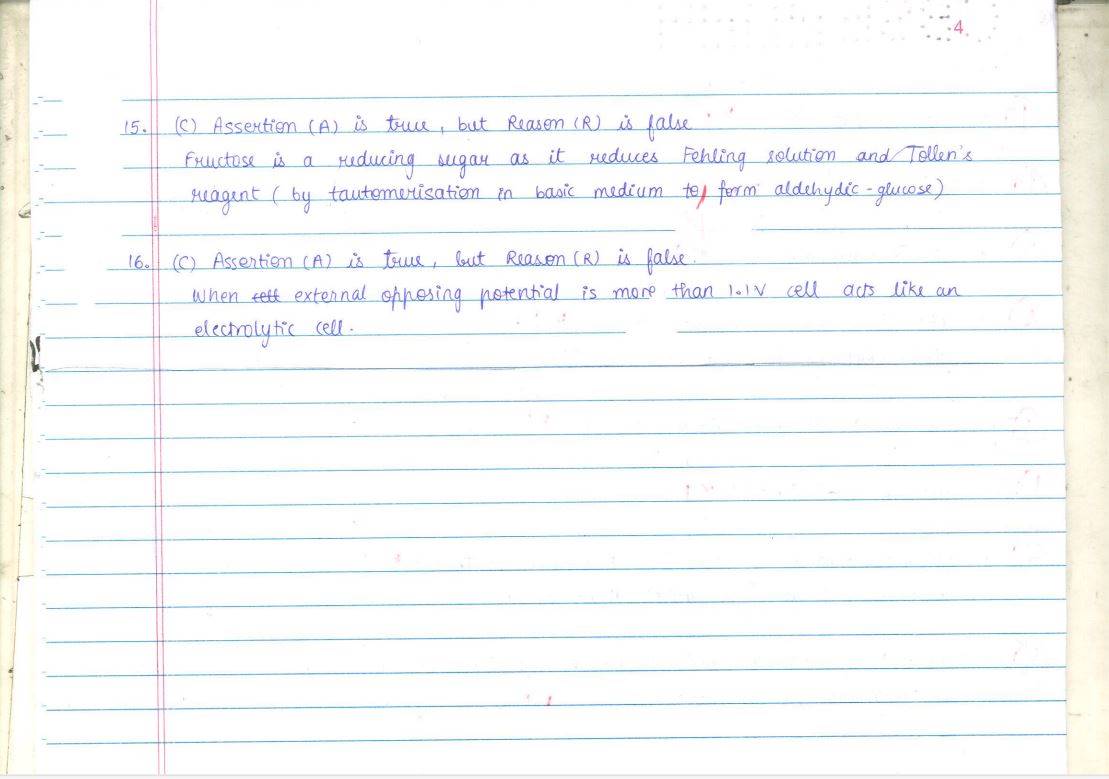 4.
15. (C) Assertion (A) is true, but Reason (R) is false
Fructose is a reducing sugar as it reduces Fehling solution and Tollen's
reagent ( by tautomerisation in basic medium to form aldehydic - glucose)
16. (C) Assertion (A) is true, but Reason (R) is false.
When cell external opposing potential is more than 1.1V cell acts like an
electrolytic cell.